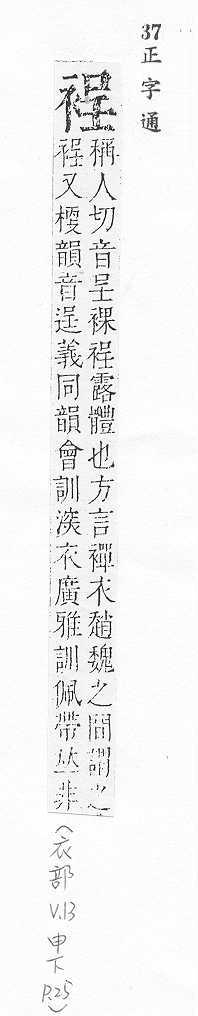 37正字通
裎
稱人切音呈裸裎露體也方言襌衣趙魏之間謂之
裎又梗韻音逞義同韻會訓深衣廣雅訓佩帶𠀤非
(衣部 V.13 申下 P.25)